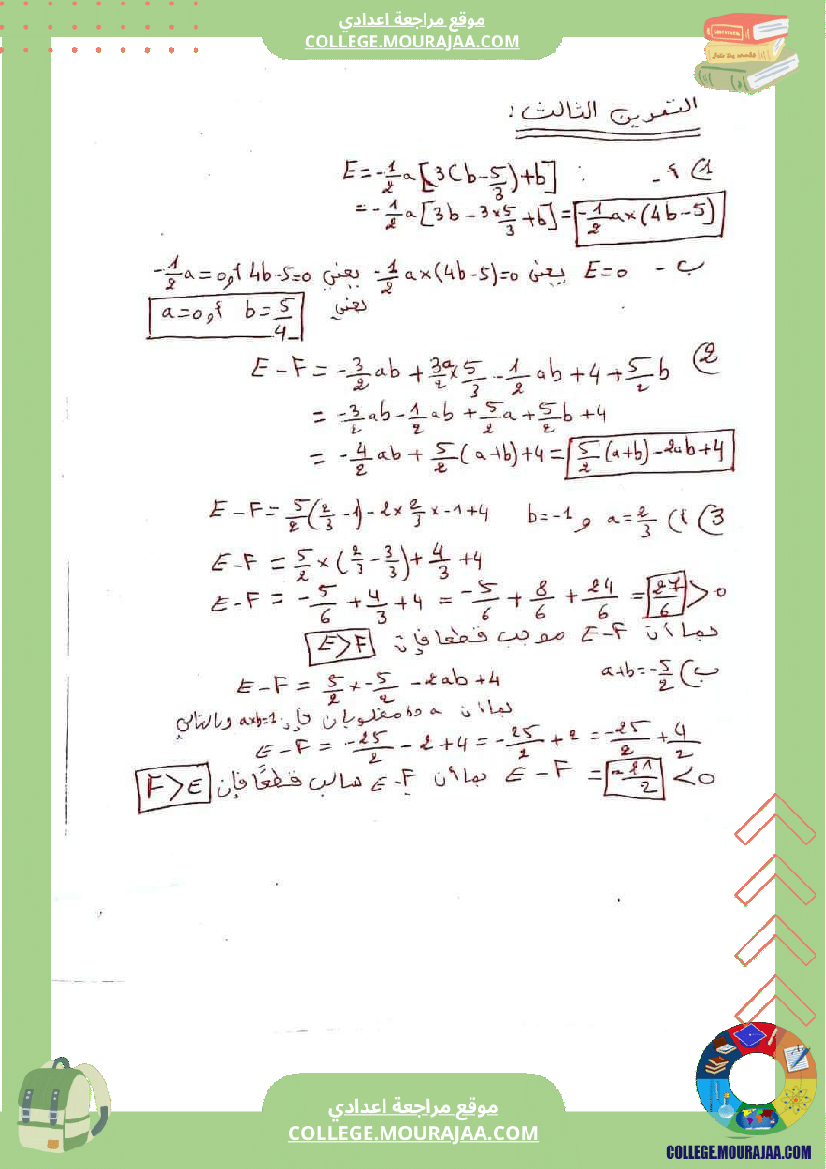 موقع مراجعة اعدادي
COLLEGE.MOURAJAA.COM
التمرين الثالث :
1) أ - : E = -1/2 a [3(b - 5/3) + b]
= -1/2 a [3b - 3×5/3 + b] = -1/2 a×(4b-5)
ب - E=0 يعني -1/2 a×(4b-5)=0 يعني 4b-5=0 أو -1/2 a=0
يعني b=5/4 أو a=0
2) E-F = -3/2 ab + 3a/2 × 5/3 - 1/2 ab + 4 + 5/2 b
= -3/2 ab - 1/2 ab + 5/2 a + 5/2 b + 4
= -4/2 ab + 5/2 (a+b) + 4 = 5/2 (a+b) - 2ab + 4
3) أ) a=2/3 و b=-1 E-F = 5/2 (2/3 - 1) - 2×2/3 × -1 + 4
E-F = 5/2 × (2/3 - 3/3) + 4/3 + 4
E-F = -5/6 + 4/3 + 4 = -5/6 + 8/6 + 24/6 = 27/6 > 0
بما أن E-F موجب قطعا فإن E>F
ب) a+b = -5/2
E-F = 5/2 × -5/2 - 2ab + 4
بما أن a و b مقلوبان فإن a×b=1 وبالتالي
E-F = -25/2 - 2 + 4 = -25/2 + 2 = -25/2 + 4/2
E-F = -21/2 < 0 بما أن E-F سالب قطعًا فإن F>E
موقع مراجعة اعدادي
COLLEGE.MOURAJAA.COM
COLLEGE.MOURAJAA.COM